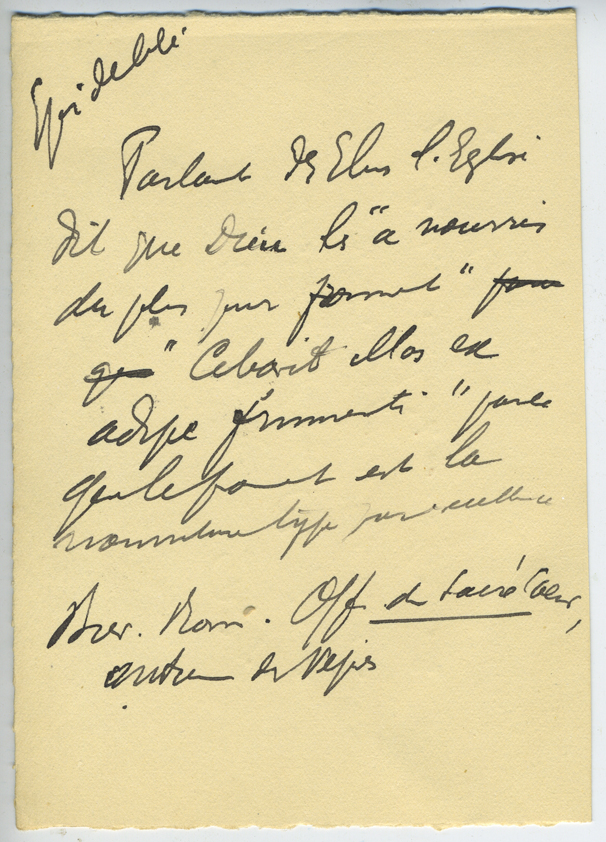 Epi de blé
Parlant des Elus l'Eglise
dit que Dieu les "a nourris
du plus pur froment" parce
que " Cibavit illos ex
adipe frumenti " parce
que le froment est la
nourriture type par excellence
Brev. Rom. Off. du Sacré Coeur,
antienne des Vêpres